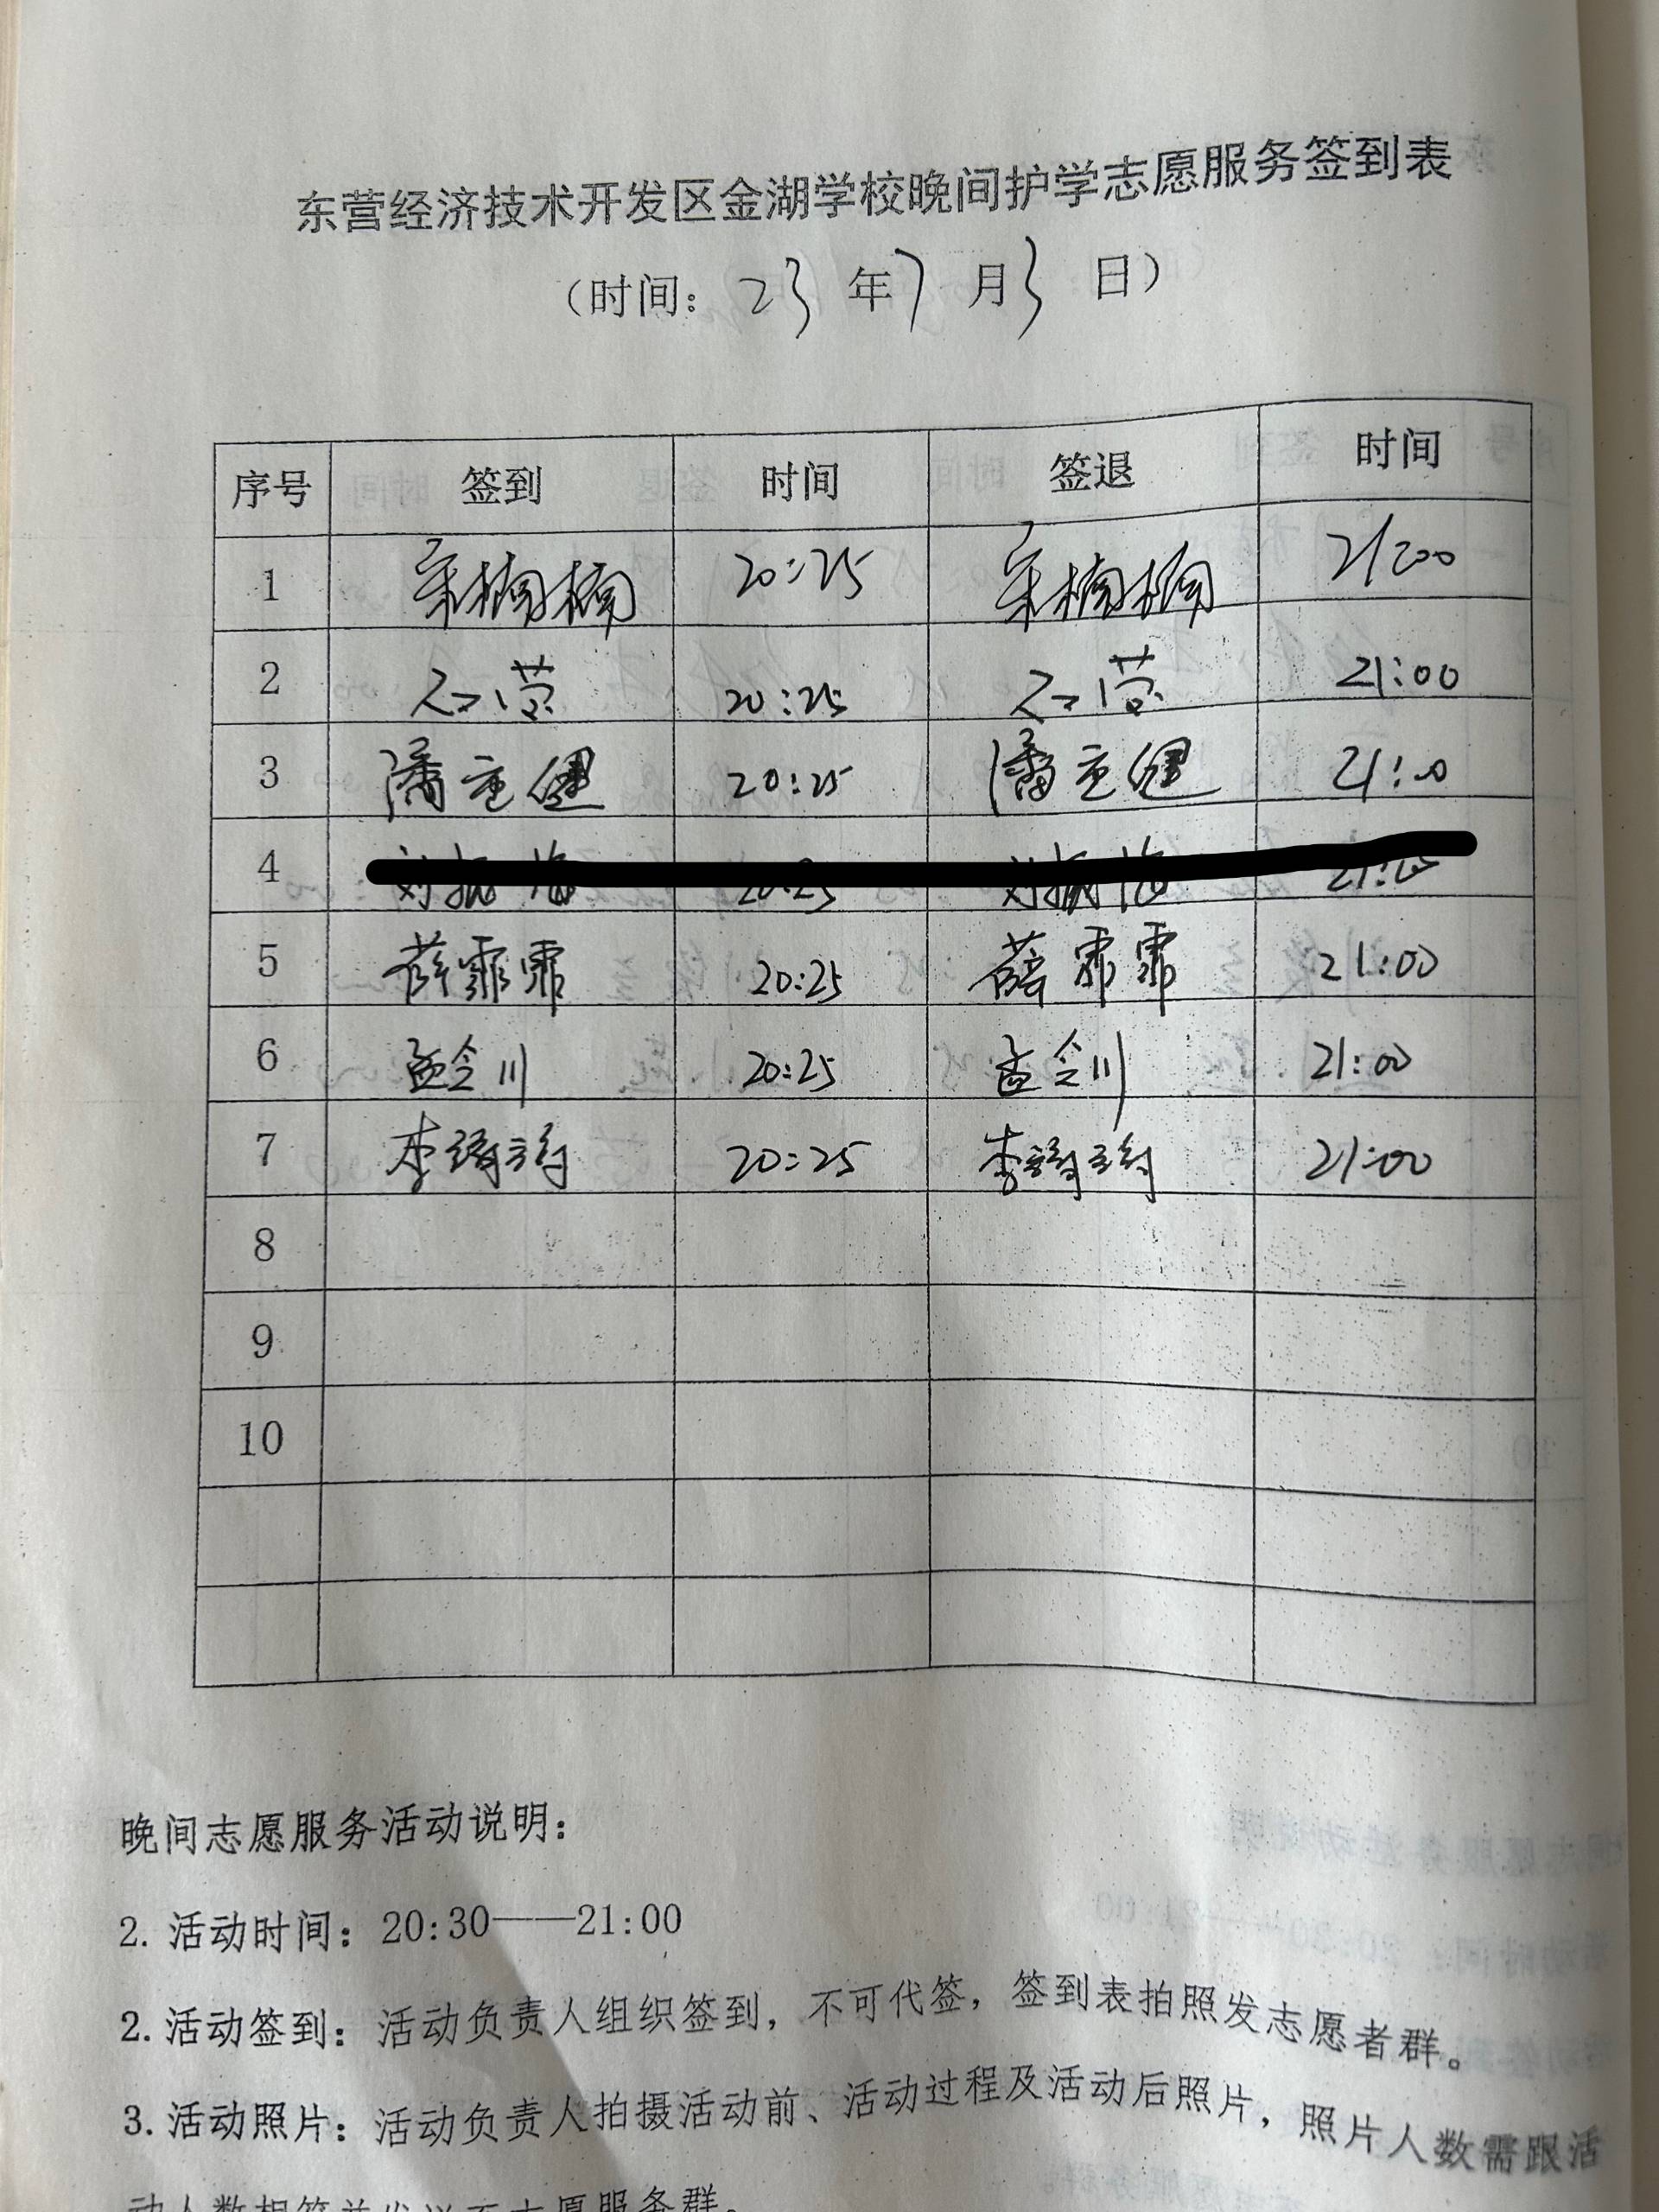 东营经济技术开发区金湖学校晚间护学志愿服务签到表
（时间：23年7月3日）
序号 签到 时间 签退 时间
1 楠楠 20:25 楠楠 21:00
2 20:25 21:00
3 潘重健 20:25 潘重健 21:00
4
5 薛霏霏 20:25 薛霏霏 21:00
6 孟令川 20:25 孟令川 21:00
7 李 20:25 李 21:00
8
9
10
晚间志愿服务活动说明：
2. 活动时间：20:30——21:00
2. 活动签到：活动负责人组织签到，不可代签，签到表拍照发志愿者群。
3. 活动照片：活动负责人拍摄活动前、活动过程及活动后照片，照片人数需跟活